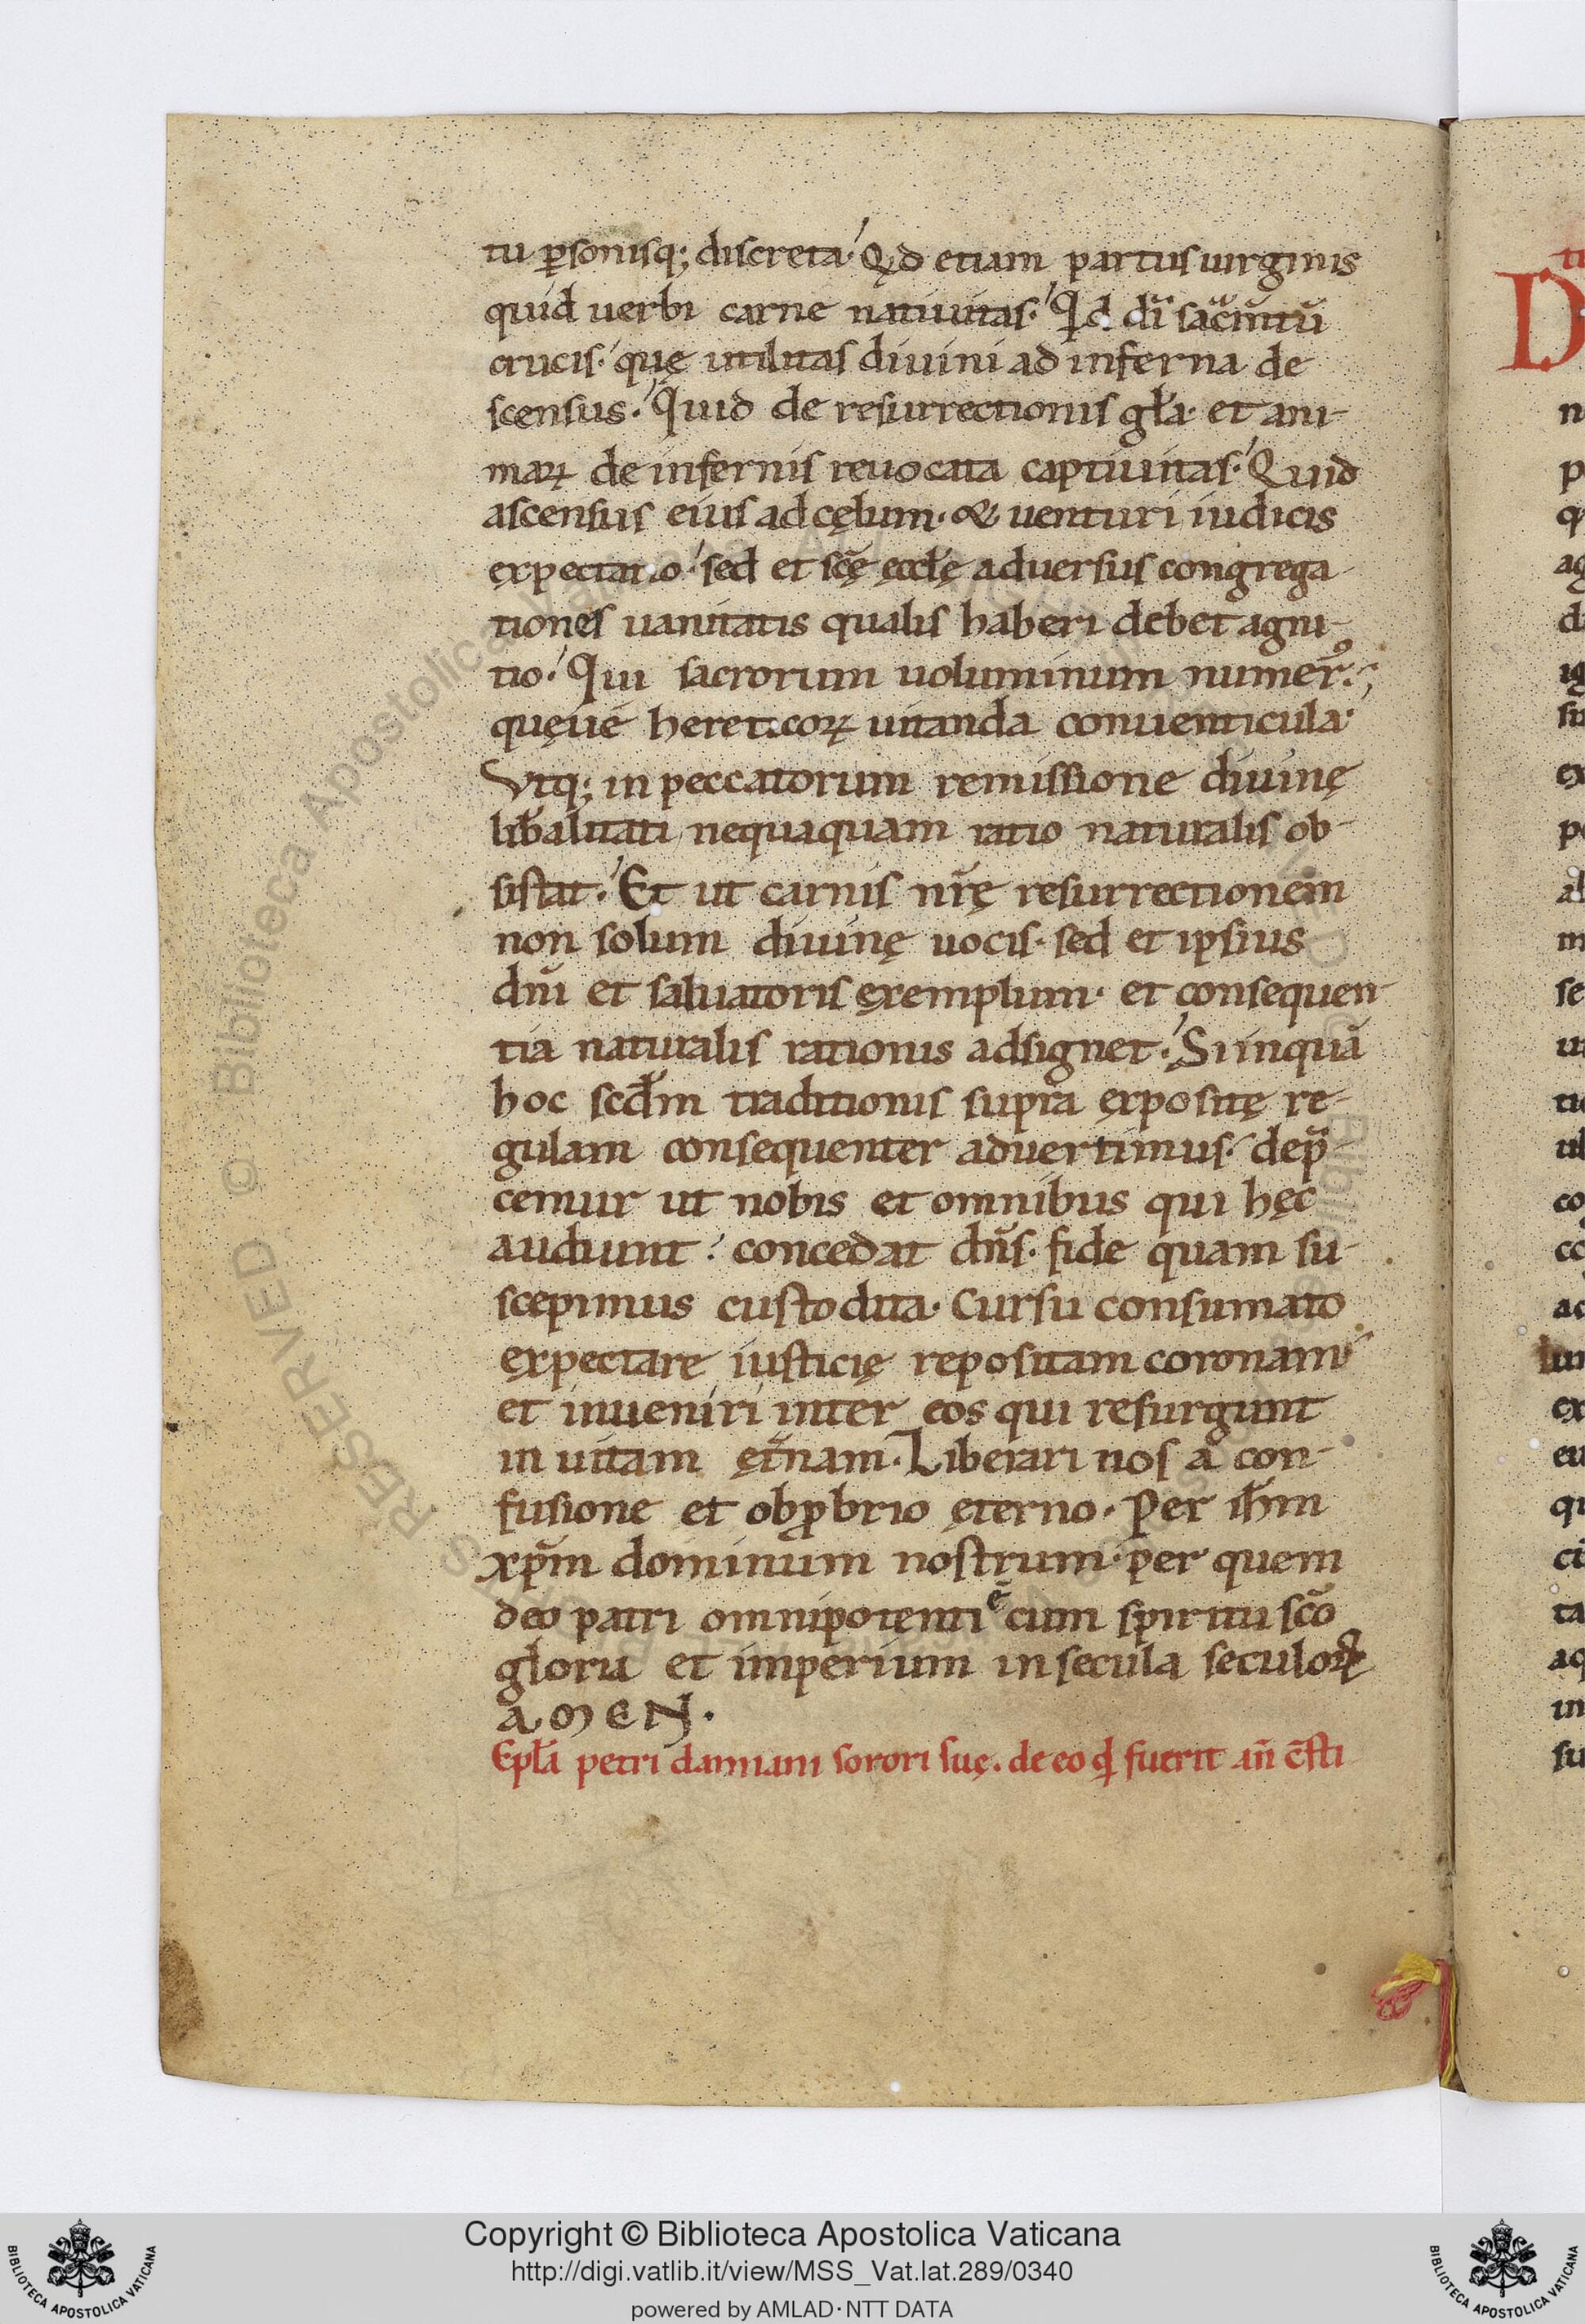 tu ꝑsonisq; discreta· Qd etiam partus uirginis
quid uerbi carne natiuitas· Qd dı̄ sac̄m̄tū
crucis· quę utilitas diuini ad inferna de
scensus· Quid de resurrectionis gl̄a· et ani-
maꝝ de infernis reuocata captiuitas· Quid
ascensus eius ad cęlum· & uenturi iudicis
expectatio· sed et sc̄ę ęccl̄ę aduersus congrega
tiones uanitatis qualis haberi debet agni-
tio· Qui sacrorum uoluminum numer᷒·;
quęue hereticoꝝ uitanda conuenticula·
Vtq; in peccatorum remissione diuinę
lib̄alitati nequaquam ratio naturalis ob-
sistat· Et ut carnis nr̄ę resurrectionem
non solum diuinę uocis· sed et ipsius
dn̄i et saluatoris ęxemplum· et consequen-
tia naturalis rationis adsignet· Si inquā
hoc scd̄m traditionis supra ęxpositę re-
gulam consequenter aduertimus· dep̄-
cemur ut nobis et omnibus qui hęc
audiunt· concedat dn̄s· fide quam su-
scepimus custodita· Cursu consumato
ęxpectare iusticię repositam coronam
et inueniri inter eos qui resurgunt
in uitam ęt̄nam· Liberari nos a con-
fusione et obꝓbrio ęterno· Per ih̄m
xp̄m dominum nostrum· per quem
deo patri omnipotenti ē cum spiritu sc̄o
gloria et imperium in secula seculoꝝ
AMEN·
Epl̄a petri damiani sorori suę· de eo qd̄ fuerit an̄ c̄sti
D
Copyright © Biblioteca Apostolica Vaticana
http://digi.vatlib.it/view/MSS_Vat.lat.289/0340
powered by AMLAD·NTT DATA
BIBLIOTECA APOSTOLICA VATICANA
BIBLIOTECA APOSTOLICA VATICANA